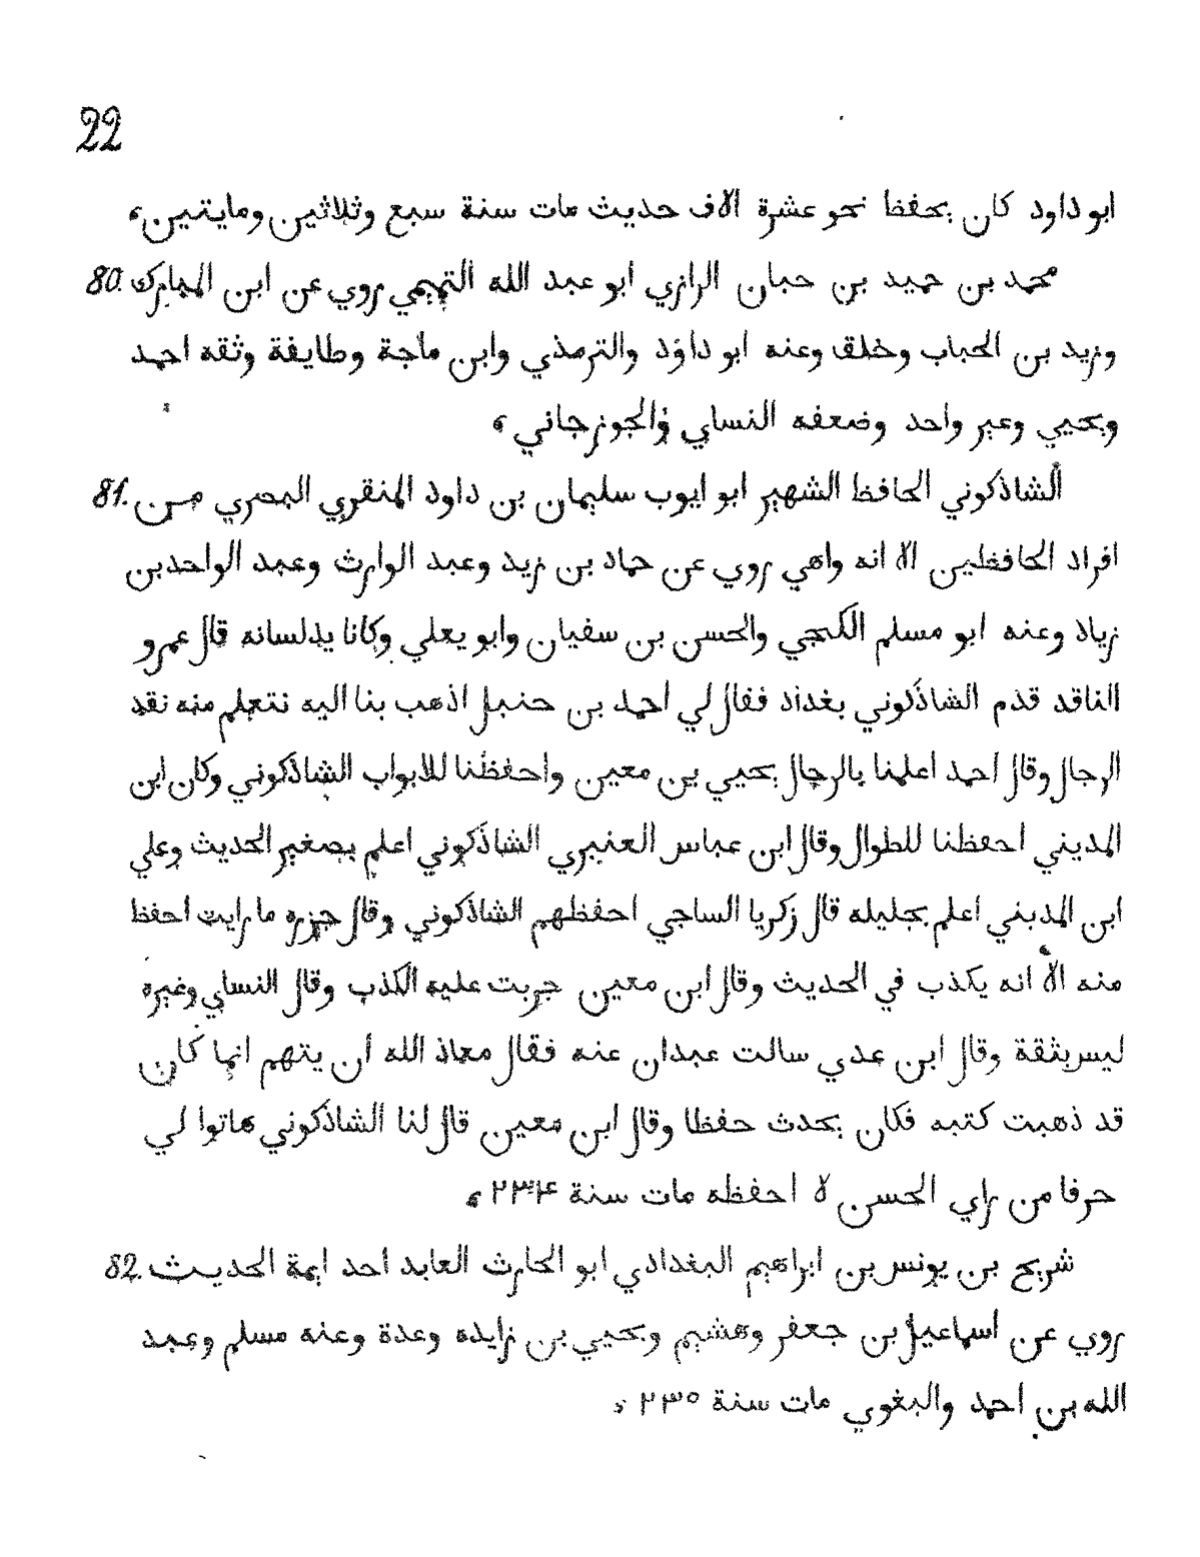 22
ابو داود كان يحفظ نحو عشرة الاف حديث مات سنة سبع وثلاثين ومايتين،
80. محمد بن حميد بن حبان الرازي ابو عبد الله التميمي روي عن ابن المبارك
وزيد بن الحباب وخلق وعنه ابو داود والترمذي وابن ماجة وطايفة وثقه احمد
ويحيي وغير واحد وضعفه النساي والجوزجاني ،
81. الشاذكوني الحافظ الشهير ابو ايوب سليمان بن داود المنقري البصري مـن
افراد الحافظين الا انه واهي روي عن حماد بن زيد وعبد الوارث وعبد الواحد بن
زياد وعنه ابو مسلم الكجي والحسن بن سفيان وابو يعلي وكانا يدلسانه قال عمرو
الناقد قدم الشاذكوني بغداد فقال لي احمد بن حنبل اذهب بنا اليه نتعلم منه نقد
الرجال وقال احمد اعلمنا بالرجال يحيي بن معين واحفظنا للابواب الشاذكوني وكان ابن
المديني احفظنا للطوال وقال ابن عباس العنبري الشاذكوني اعلم بصغير الحديث وعلي
ابن المديني اعلم بجليله قال زكريا الساجي احفظهم الشاذكوني وقال جزره ما رايت احفظ
منه الا انه يكذب في الحديث وقال ابن معين جربت عليه الكذب وقال النساي وغيره
ليس بثقة وقال ابن عدي سالت عبدان عنه فقال معاذ الله أن يتهم انما كان
قد ذهبت كتبه فكان يحدث حفظا وقال ابن معين قال لنا الشاذكوني هاتوا لي
حرفا من راي الحسن لا احفظه مات سنة ٢٣۴ ،
82. شريح بن يونس بن ابراهيم البغدادي ابو الحارث العابد احد ايمة الحديث
روي عن اسماعيل بن جعفر وهشيم ويحيي بن زايده وعدة وعنه مسلم وعبد
الله بن احمد والبغوي مات سنة ٢٣٥ ،